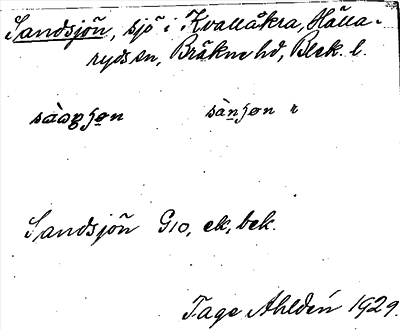 Sandsjön, sjö i Kvallåkra, Hälla-
ryds sn, Bräkne hd, Blek. l.
sànʃon
Sandsjön G10, ek, bek.
Tage Ahldén 1929.